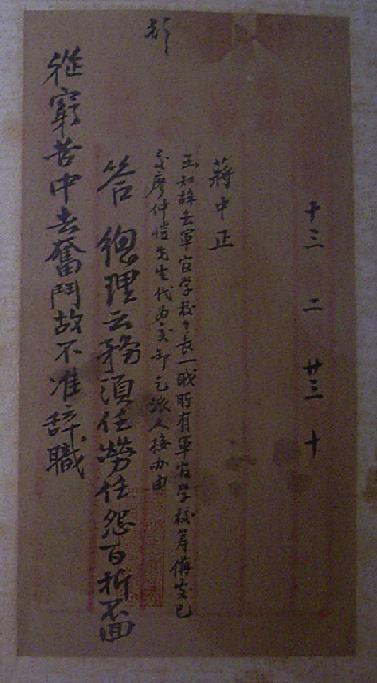 十三 二 廿三 十
蔣中正
函知辭去軍官學校々長一職所有軍官學校籌備處已
交廖仲愷先生代為交卸乞派人接辦由
答 總理云務須任勞任怨百折不回
從窮苦中去奮鬥故不准辭職